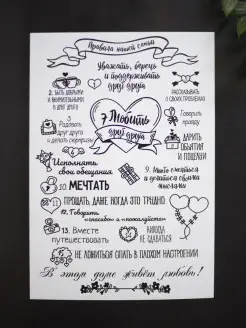 Правила нашей семьи
Уважать, беречь
и поддерживать
друг друга
1.
2. БЫТЬ ДОБРЫМИ
И ВНИМАТЕЛЬНЫМИ
ДРУГ К ДРУГУ
РАССКАЗЫВАТЬ
О СВОИХ ПРОБЛЕМАХ
Радовать
друг друга
и делать сюрпризы
7 Любить
друг друга
Говорить
правду
ДАРИТЬ
ОБЪЯТИЯ
И ПОЦЕЛУИ
Исполнять
свои обещания
9. Мыть смеяться
и делиться своими
мыслями
10. МЕЧТАТЬ
ПРОЩАТЬ, ДАЖЕ КОГДА ЭТО ТРУДНО
12. Говорить
«спасибо» и «пожалуйста»
13. Вместе
путешествовать
14 НИКОГДА
НЕ СДАВАТЬСЯ
15 НЕ ЛОЖИТЬСЯ СПАТЬ В ПЛОХОМ НАСТРОЕНИИ
В этом доме живёт любовь!